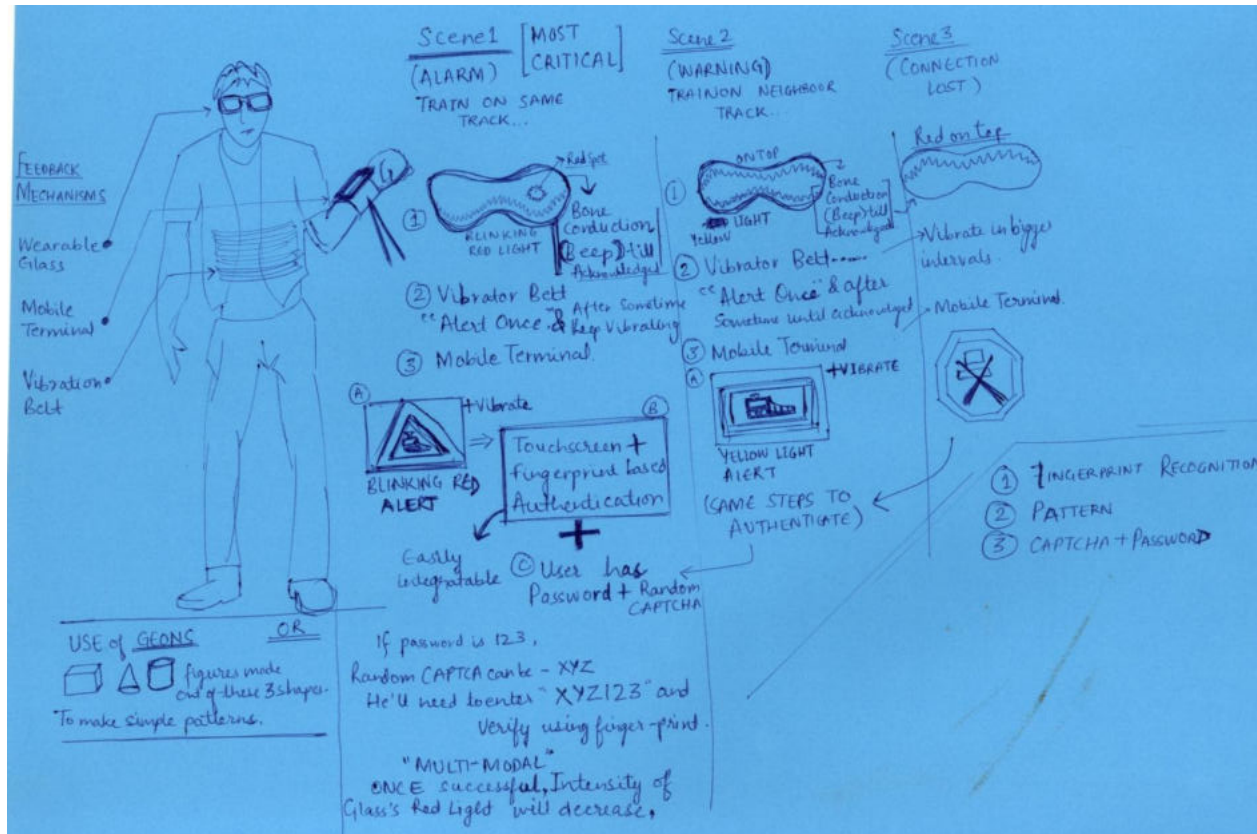 FEEDBACK
MECHANISMS
Wearable
Glass
Mobile
Terminal
Vibration
Belt
USE of GEONS OR
figures made
out of these 3 shapes.
To make simple patterns.
Scene 1 [MOST
CRITICAL]
(ALARM)
TRAIN ON SAME
TRACK...
Red Spot
1
BLINKING
RED LIGHT
Bone
Conduction
(Beep) till
Acknowledged
2 Vibrator Belt
"Alert Once" & After Sometime
Keep Vibrating
3 Mobile Terminal.
A
+Vibrate
BLINKING RED
ALERT
B
Touchscreen +
fingerprint based
Authentication
+
Easily
C User has
Password + Random
CAPTCHA
If password is 123,
Random CAPTCA can be - XYZ
He'll need to enter "XYZ123" and
Verify using finger-print.
"MULTI-MODAL"
ONCE successful, Intensity of
Glass's Red Light will decrease.
Scene 2
(WARNING)
TRAIN ON NEIGHBOOR
TRACK...
1
ON TOP
Yellow LIGHT
2
Bone
Conduction
(Beep) till
Acknowledged
2 Vibrator Belt.....
"Alert Once" & after
Sometime until acknowledged
3 Mobile Terminal
A
+VIBRATE
YELLOW LIGHT
ALERT
(SAME STEPS TO
AUTHENTICATE)
Scene 3
(CONNECTION
LOST)
Red on top
Vibrate in bigger
intervals.
Mobile Terminal.
1 FINGERPRINT RECOGNITION
2 PATTERN
3 CAPTCHA + PASSWORD